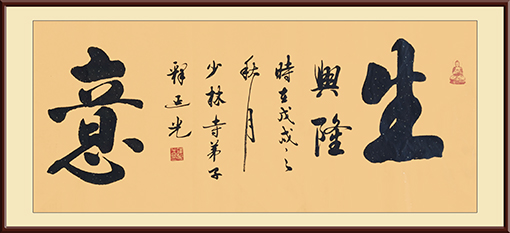 生
興隆
時在戊戌之
秋月
少林寺弟子
釋延光
意